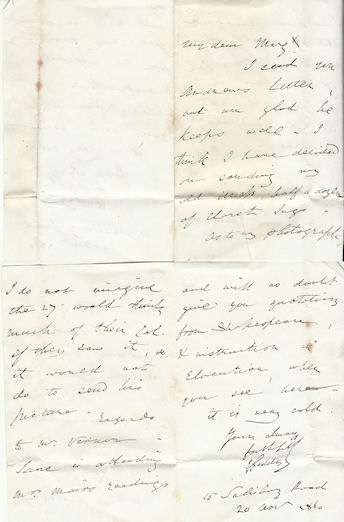 My dear Marg
I send you
Andrews Letter,
and am glad he
keeps well - I
think I have decided
on sending my
old half a dozen
of Claret Jugs -
As to my photograph
I do not imagine
the 27 would think
much of their Col.
if they saw it, so
it would not
do to send his
picture - Regards
to Mr. Vernon -
Jane is attending
Mr. Mairs readings
and will no doubt
give you quotations
from Shakespeare,
& instruction in
Elocution, when
you see her -
it is very cold.
Yours always
faithfully
15 Salisbury Road
20 Nov 1860